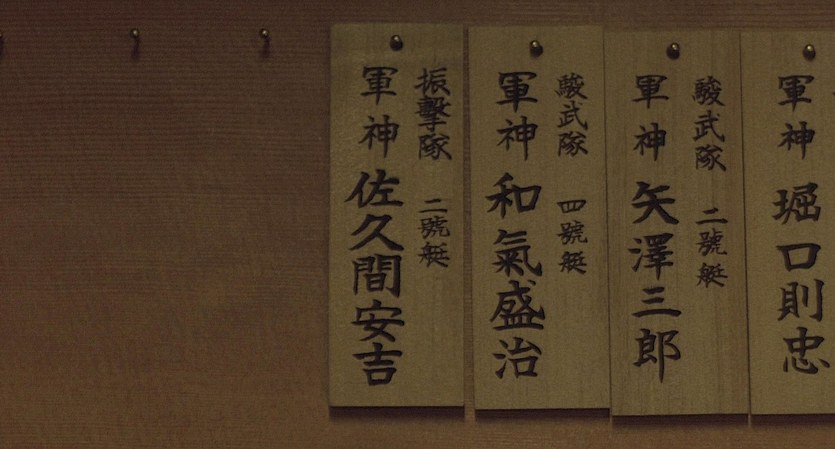 軍神 堀口則忠
駿武隊 二號艇
軍神 矢澤三郎
駿武隊 四號艇
軍神 和氣盛治
振擊隊 二號艇
軍神 佐久間安吉